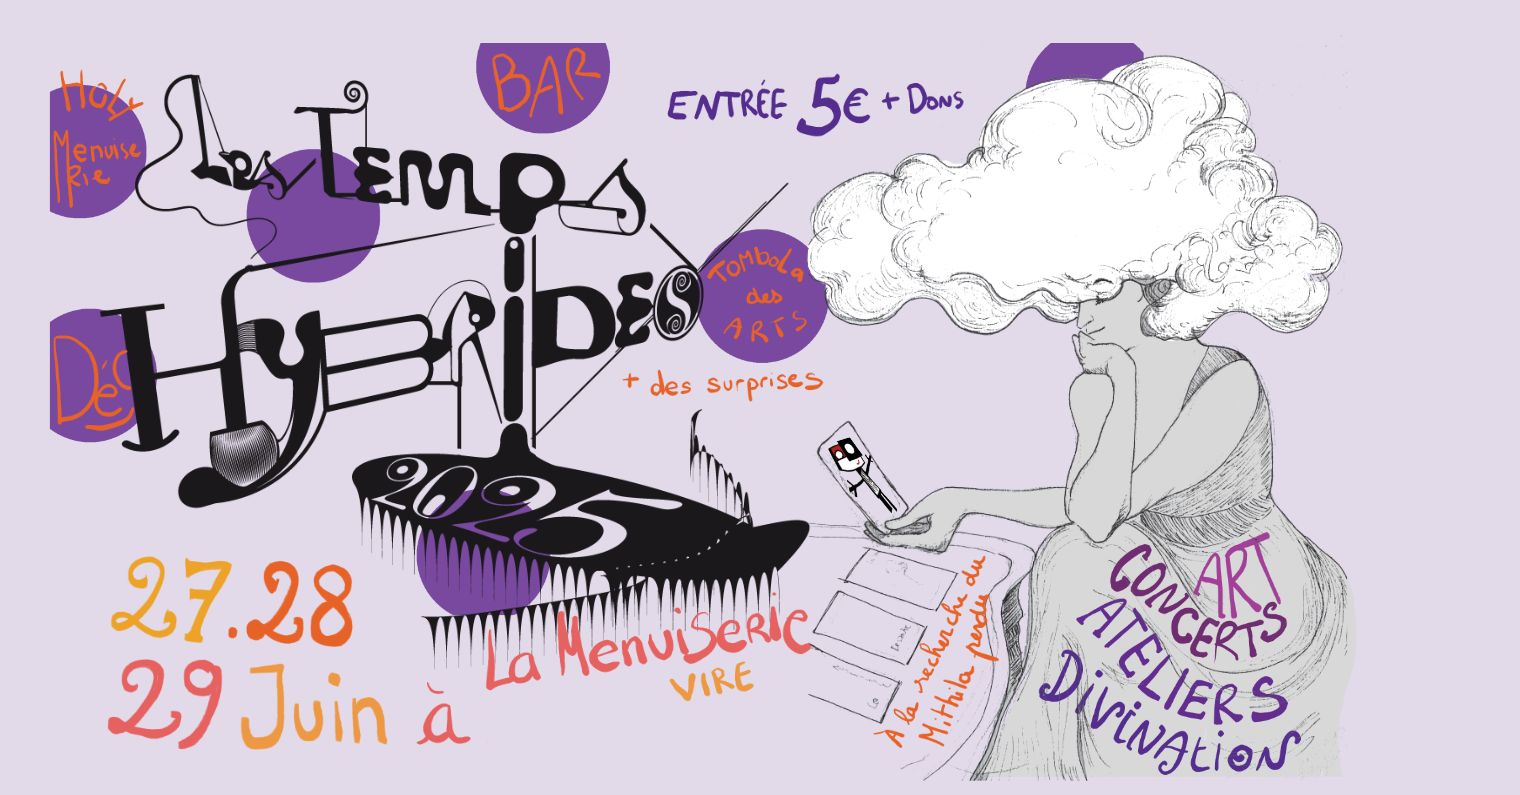 HOLY
Menuise
Rie
BAR
ENTRÉE 5€ + Dons
Les Temps
HYBRIDES
TOMBOLA
des
ARTS
+ des surprises
2025
27.28
29 Juin à
La MenuiSeRie
VIRE
À la recherche du
Mithila perdu
ART
CONCERTS
ATELIERS
DiviNAtioN